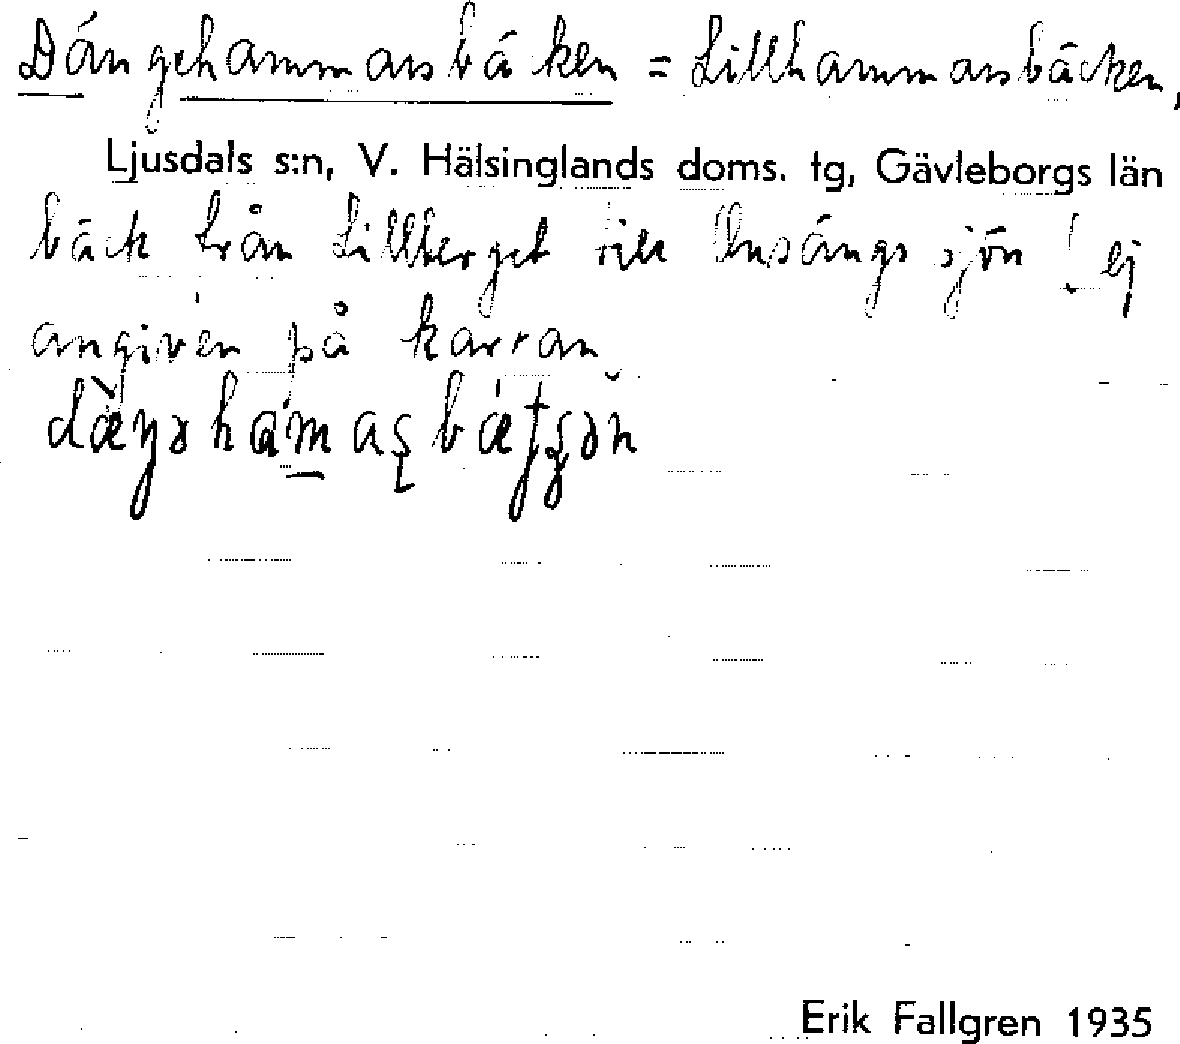 Dängehammarsbäken = Lillhammarsbäcken,
Ljusdals s:n, V. Hälsinglands doms. tg, Gävleborgs län
bäck från Lillberget till sjön ! ej
angiven på kartan
Erik Fallgren 1935